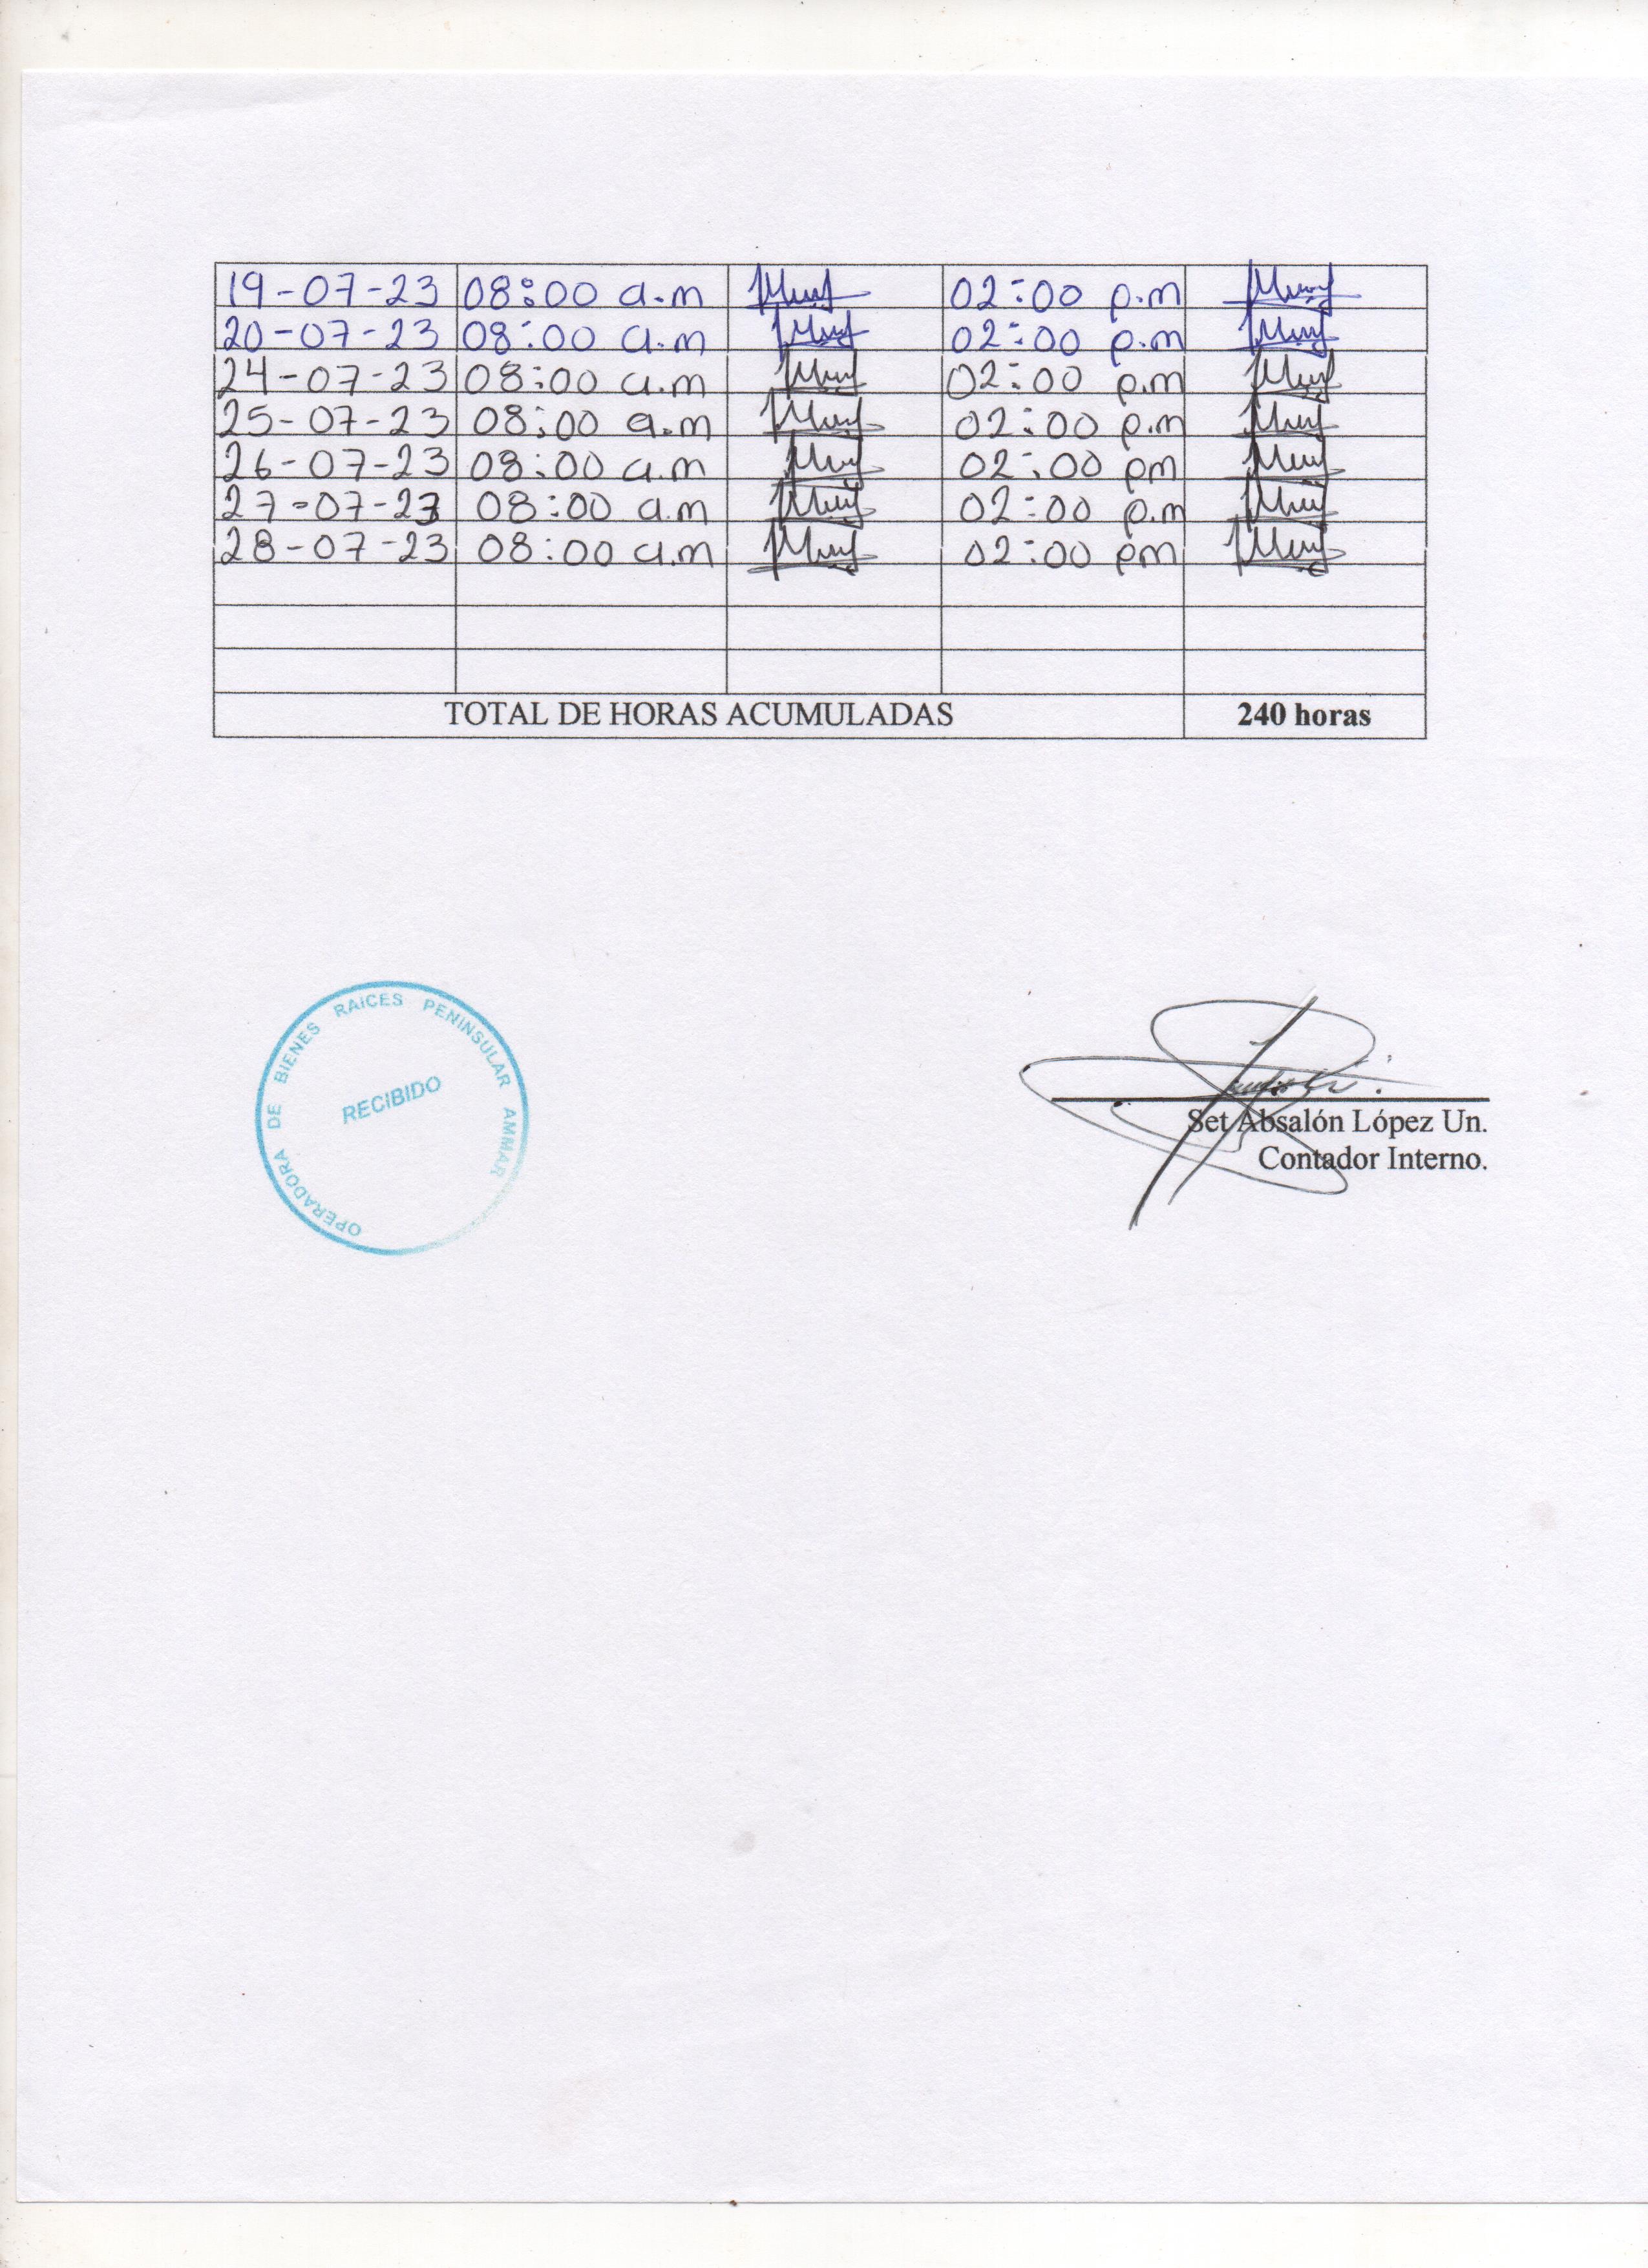 19-07-23 08:00 a.m 02:00 p.m
20-07-23 08:00 a.m 02:00 p.m
24-07-23 08:00 a.m 02:00 p.m
25-07-23 08:00 a.m 02:00 p.m
26-07-23 08:00 a.m 02:00 pm
27-07-23 08:00 a.m 02:00 p.m
28-07-23 08:00 a.m 02:00 pm
TOTAL DE HORAS ACUMULADAS 240 horas
OPERADORA DE BIENES RAICES PENINSULAR AMMAR
RECIBIDO
Set Absalón López Un.
Contador Interno.